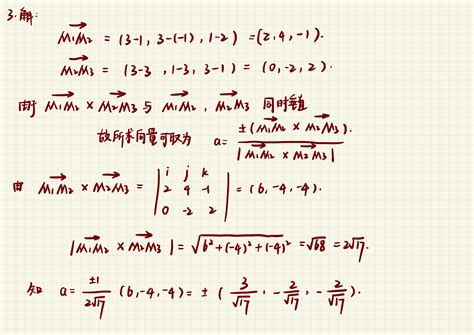 3.解:
$\overrightarrow{M_1M_2}$ = (3-1, 3-(-1), 1-2) = (2, 4, -1).
$\overrightarrow{M_2M_3}$ = (3-3, 1-3, 3-1) = (0, -2, 2).
由于 $\overrightarrow{M_1M_2}$ × $\overrightarrow{M_2M_3}$ 与 $\overrightarrow{M_1M_2}$, $\overrightarrow{M_2M_3}$ 同时垂直
故所求向量可取为 a= $\frac{\pm(\overrightarrow{M_1M_2} \times \overrightarrow{M_2M_3})}{|\overrightarrow{M_1M_2} \times \overrightarrow{M_2M_3}|}$.
由 $\overrightarrow{M_1M_2}$ × $\overrightarrow{M_2M_3}$ = $\begin{vmatrix} i & j & k \\ 2 & 4 & -1 \\ 0 & -2 & 2 \end{vmatrix}$ = (6, -4, -4).
|$\overrightarrow{M_1M_2}$ × $\overrightarrow{M_2M_3}$| = $\sqrt{6^2+(-4)^2+(-4)^2}$ = $\sqrt{68}$ = $2\sqrt{17}$.
知 a= $\frac{\pm1}{2\sqrt{17}}$ (6, -4, -4) = ± ($\frac{3}{\sqrt{17}}$, -$\frac{2}{\sqrt{17}}$, -$\frac{2}{\sqrt{17}}$).